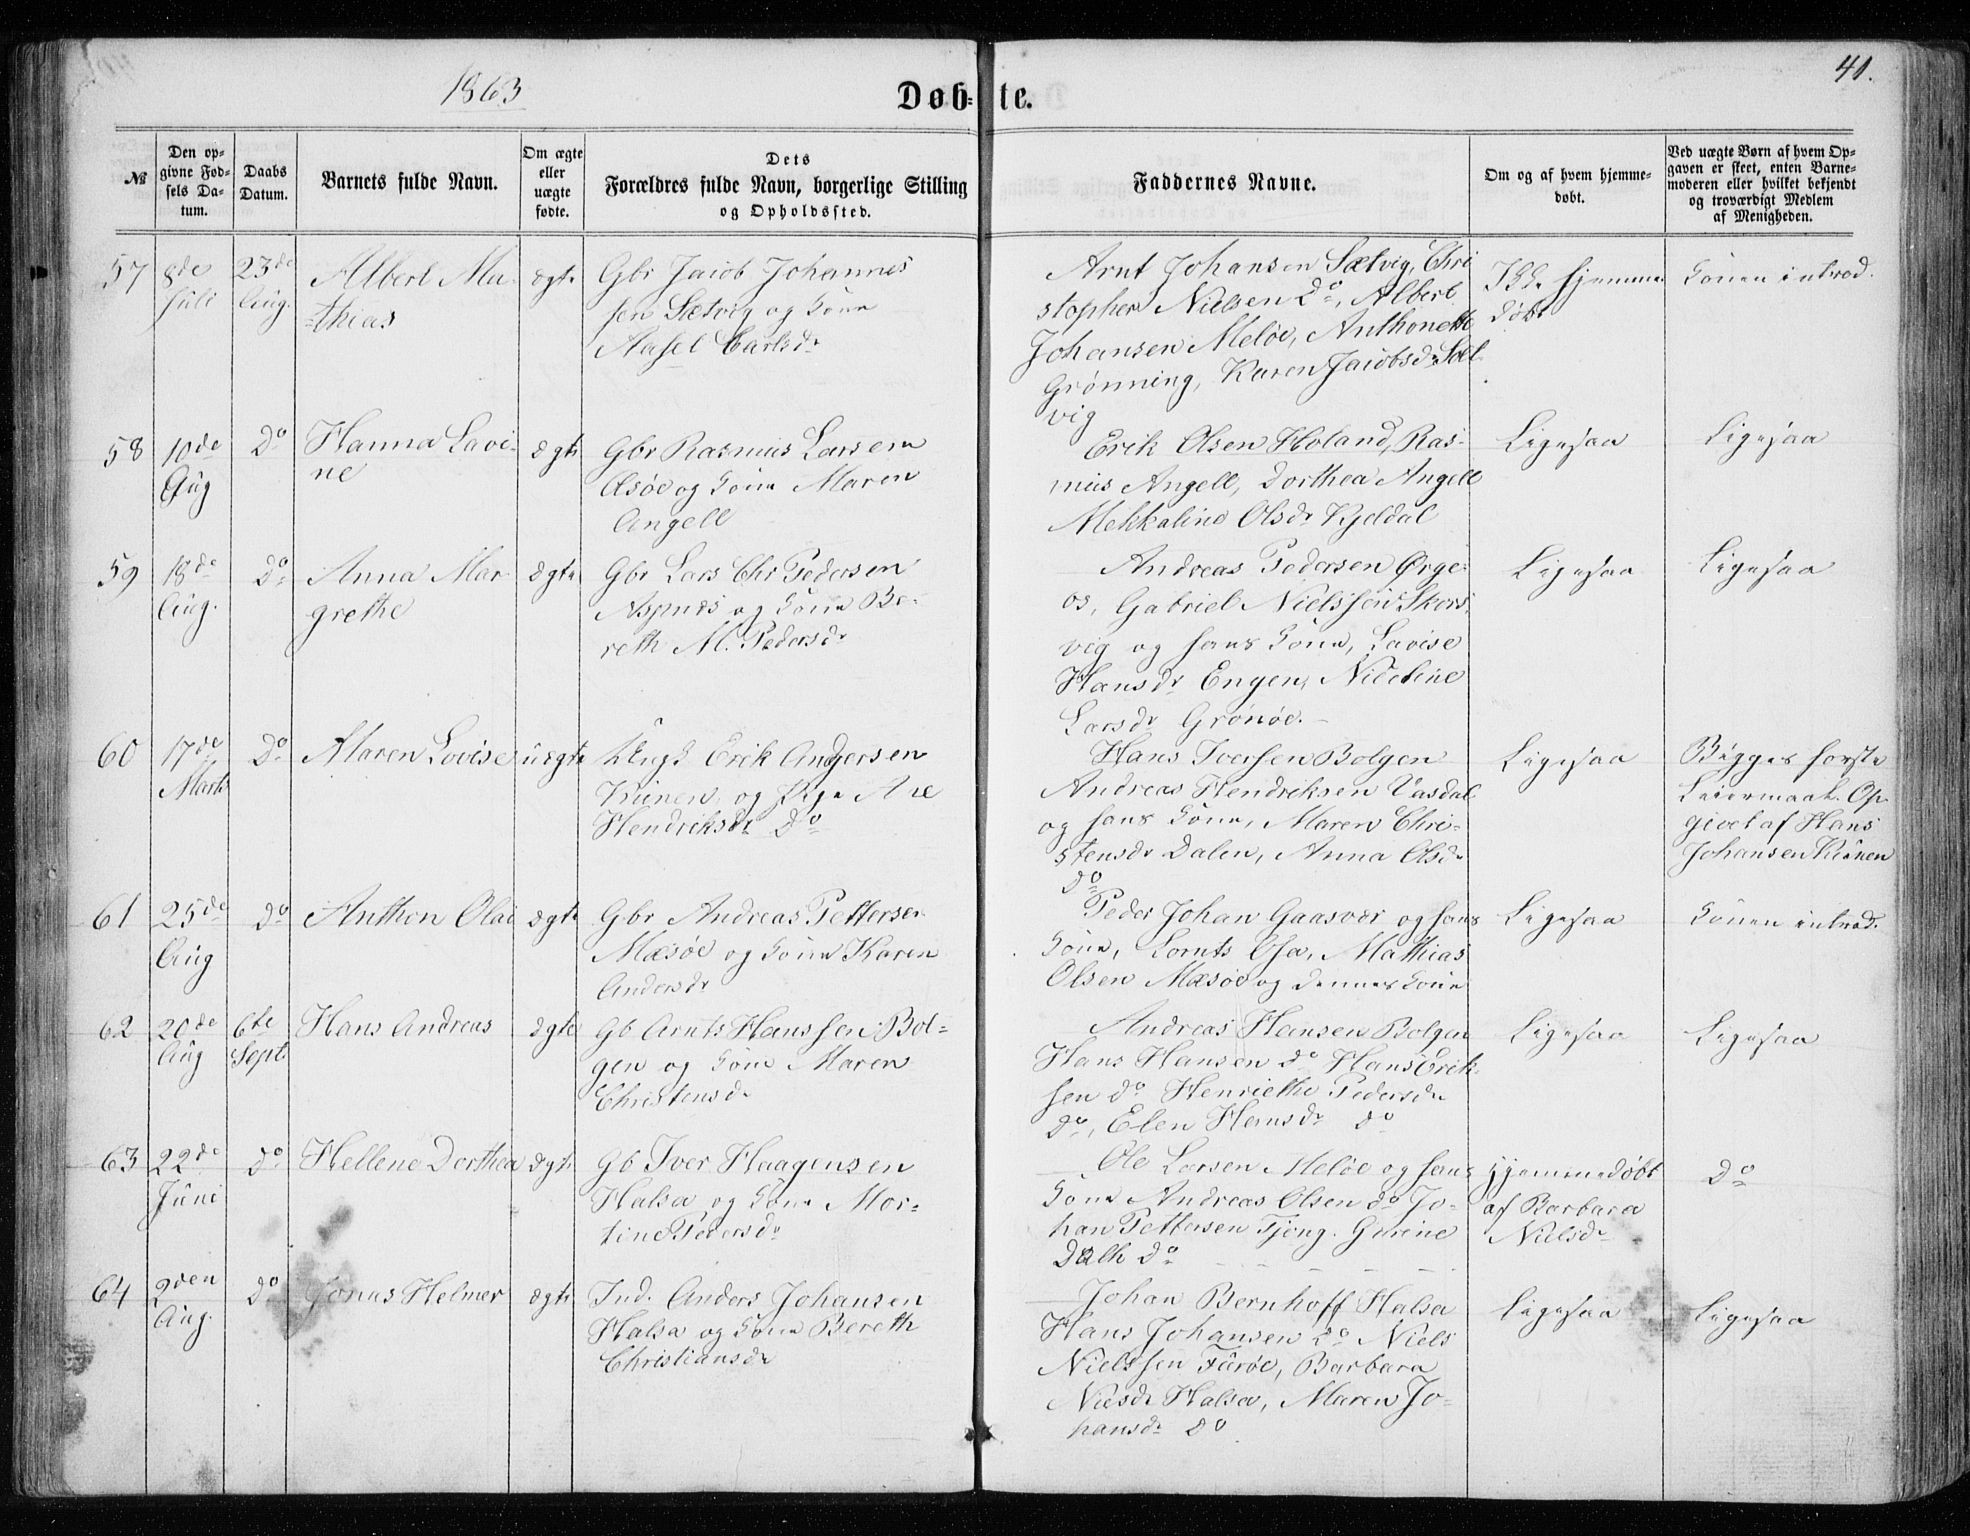 1863
Døb-te.
41.
№
Den op-
givne Fød-
sels Da-
tum.
Daabs
Datum.
Barnets fulde Navn.
Om ægte
eller
uægte
fødte.
Dets
Forældres fulde Navn, borgerlige Stilling
og Opholdssted.
Faddernes Navne.
Om og af hvem hjemme-
døbt.
Ved uægte Børn af hvem Op-
gaven er skeet, enten Barne-
moderen eller hvilket bekjendt
og troværdigt Medlem
af Menigheden.
57
8de
Juli
23de
Aug.
Albert Ma-
thias
ægte
Gbr Jacob Johannes
sen Sætvig og Kone
Aasel Carlsdr
Arnt Johansen Sætvig, Chri
stopher Nielsen Do, Albert
Johansen Meløe, Anthonette
Grønning, Karen Jacobsdr Sæt
vig
Ikke hjemme
døbt
Konen introd.
58
10de
Aug
Do
Hanna Lavi-
ne
ægte
Gbr Rasmus Larsen
Æsøe og Kone Maren
Angell
Erik Olsen Høland, Ras-
mus Angell, Dorthea Angell
Mekkaline Olsdr Kjeldal
Ligesaa
Ligesaa
59
18de
Aug.
Do
Anna Mar
grethe
ægte
Gbr Lars Chr Pedersen
Aspnes og Kone Be-
reth M. Pedersdr
Andreas Pedersen Ørge-
os, Gabriel Nielssen Skors
vig og hans Kone, Lovise
Hansdr Engen, Nicoline
Larsdr Grønøe.
Ligesaa
Ligesaa
60
17de
Marts
Do
Maren Lovise
uægte
Ungk Erik Andersen
Kunen og Pige Ane
Hendriksdr Do
Hans Iversen Bolgen
Andreas Hendriksen Vasdal
og hans Kone, Maren Chri-
stensdr Dalen, Anna Olsdr
Do
Ligesaa
Begges første
Leiermaal. Op-
givet af Hans
Johansen Kunen
61
25de
Aug
Do
Anthon Olai
ægte
Gbr Andreas Pettersen
Mæsøe og Kone Karen
Andersdr
Peder Johan Gaasvær og hans
Kone, Lornts Mathias
Olsen Mæsøe og dennes Kone
Ligesaa
Konen introd.
62
20de
Aug
6te
Sept
Hans Andreas
ægte
Gb Arnts Hanssen Bol-
gen og Kone Maren
Christensdr
Andreas Hansen Bolgen
Hans Hansen do Hans Erik-
sen do Henriethe Pedersdr
Do, Elen Hansdr do
Ligesaa
Ligesaa
63
22de
Juni
Do
Hellene Dorthea
ægte
Gb Iver Haagensen
Halsa og Kone Mar-
tine Pedersdr
Ole Larsen Meløe og hans
Kone Andreas Olsen do Jo-
han Pettersen Tjong. Gurine
Dalh Do
Hjemmedøbt
af Barbara
Nielsdr
Do
64
2den
Aug.
Do
Jonas Helmer
ægte
Ind. Anders Johansen
Halsa og Kone Bereth
Christiansdr
Johan Bernhoff Halsa
Hans Johansen Do Niels
Nielssen Furøe, Barbara
Nielsdr Halsa, Maren Jo-
hansdr do
Ligesaa
Ligesaa